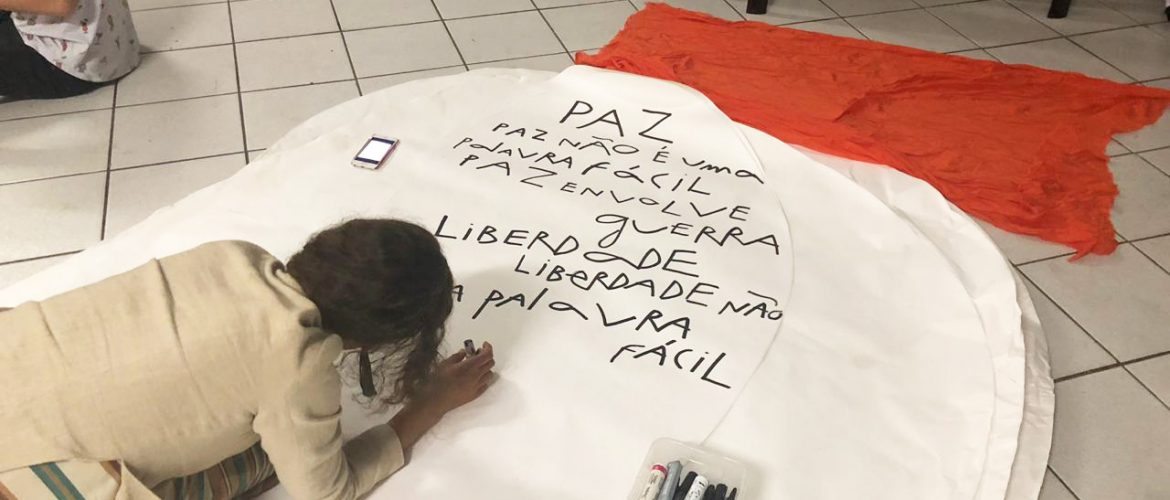 PAZ
PAZ NÃO É UMA
PALAVRA FÁCIL
PAZ ENVOLVE
GUERRA
LIBERDADE
LIBERDADE NÃO
A PALAVRA
FÁCIL